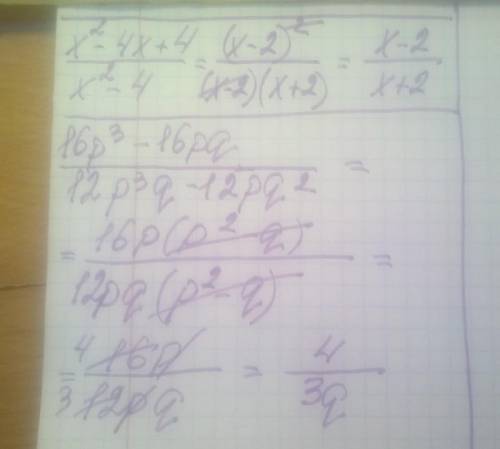 x² - 4x + 4 / x² - 4 = (x-2)² / (x-2)(x+2) = x-2 / x+2
16p³ - 16pq / 12p³q - 12pq² =
= 16p(p² - q) / 12pq(p² - q) =
= 4 16p / 3 12pq = 4 / 3q